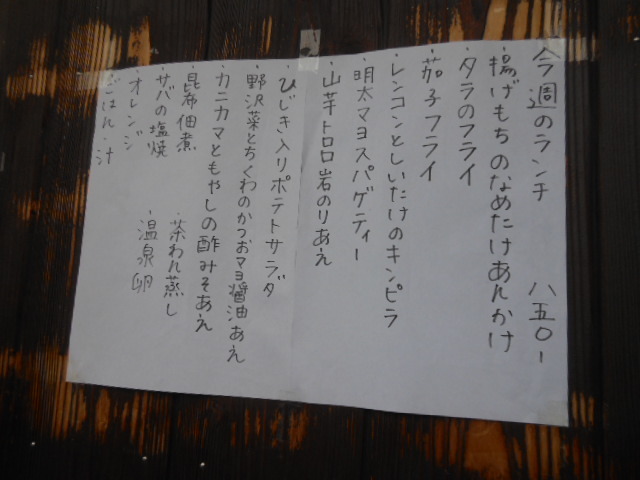 今週のランチ 八五〇ー
・揚げもちのなめたけあんかけ
・タラのフライ
・茄子フライ
・レンコンとしいたけのキンピラ
・明太マヨスパゲティー
・山芋トロロ岩のりあえ
・ひじき入りポテトサラダ
・野沢菜とちくわのかつおマヨ醤油あえ
・カニカマともやしの酢みそあえ
・昆布佃煮
・茶わん蒸し
・サバの塩焼
・温泉卵
・オレンジ
・ごはん・汁